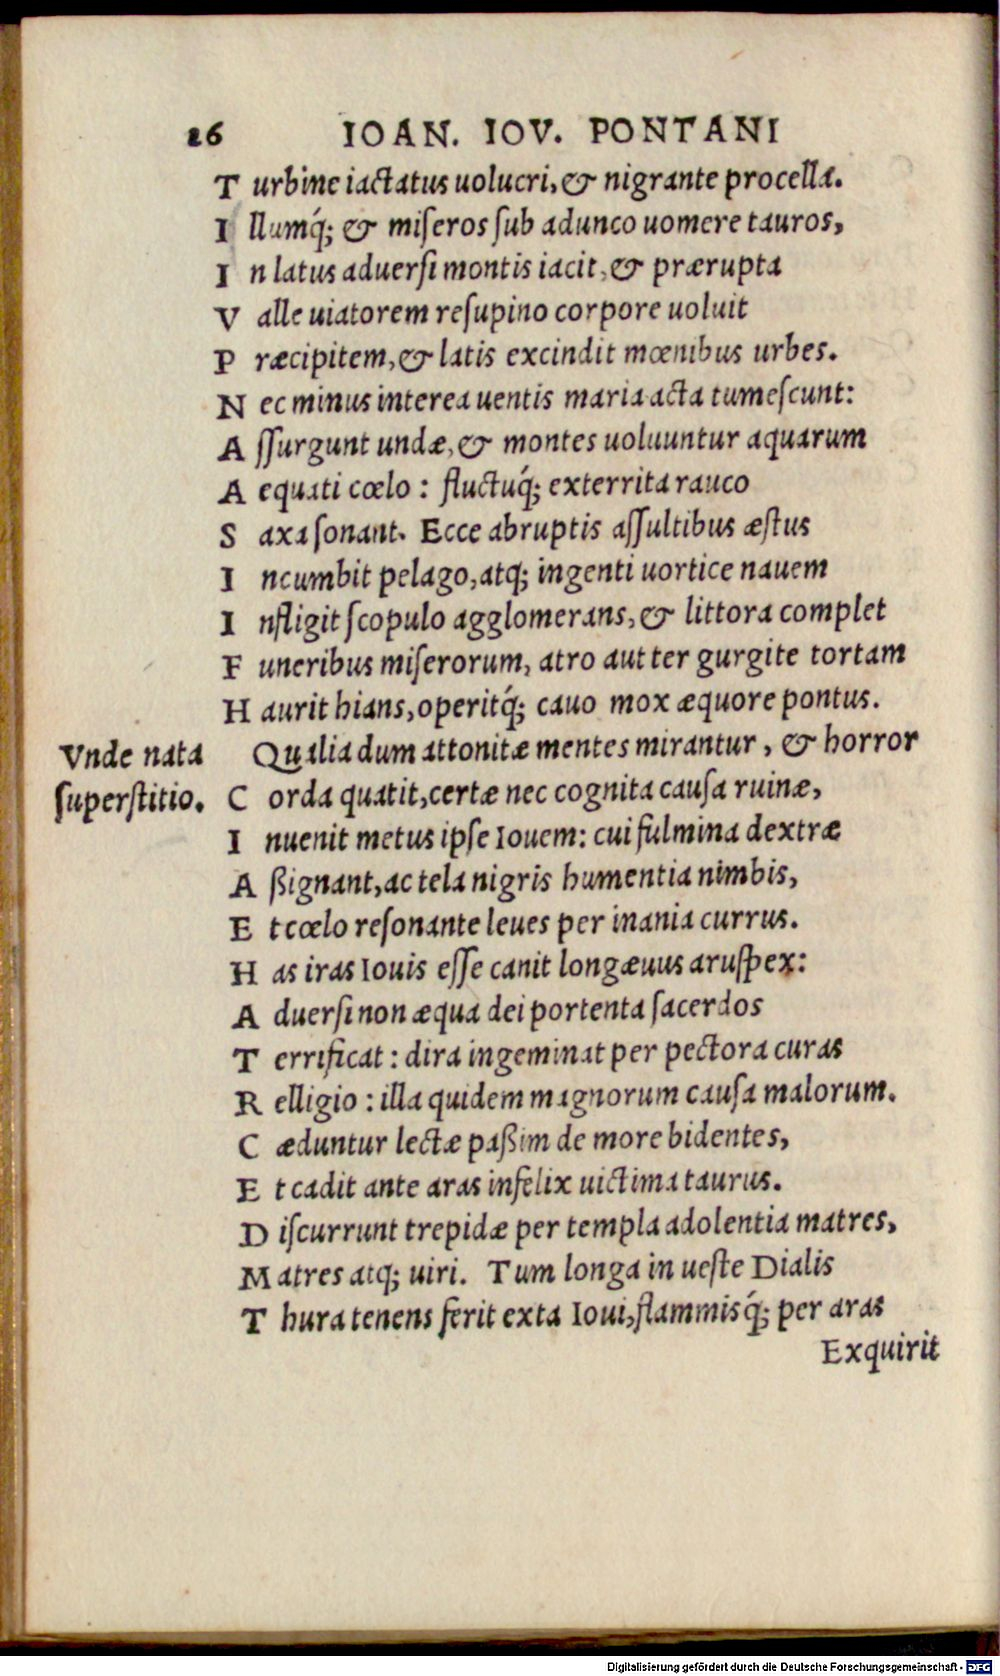 26 IOAN. IOV. PONTANI
T urbine iactatus uolucri, & nigrante procella.
I llumq́; & miseros sub adunco uomere tauros,
I n latus aduersi montis iacit, & prærupta
V alle uiatorem resupino corpore uoluit
P ræcipitem, & latis excindit mœnibus urbes.
N ec minus interea uentis maria acta tumescunt:
A ssurgunt undæ, & montes uoluuntur aquarum
A equati cœlo : fluctuq́; exterrita rauco
S axa sonant. Ecce abruptis assultibus æstus
I ncumbit pelago, atq; ingenti uortice nauem
I nfligit scopulo agglomerans, & littora complet
F uneribus miserorum, atro aut ter gurgite tortam
H aurit hians, operitq́; cauo mox æquore pontus.
Vnde nata Qualia dum attonitæ mentes mirantur, & horror
superstitio. C orda quatit, certæ nec cognita causa ruinæ,
I nuenit metus ipse Iouem: cui fulmina dextræ
A ßignant, ac tela nigris humentia nimbis,
E t cœlo resonante leues per inania currus.
H as iras Iouis esse canit longæuus aruspex:
A duersi non æqua dei portenta sacerdos
T errificat : dira ingeminat per pectora curas
R elligio : illa quidem magnorum causa malorum.
C æduntur lectæ paßim de more bidentes,
E t cadit ante aras infelix uictima taurus.
D iscurrunt trepidæ per templa adolentia matres,
M atres atq; uiri. Tum longa in ueste Dialis
T hura tenens ferit exta Ioui, flammisq́; per aras
Exquirit
Digitalisierung gefördert durch die Deutsche Forschungsgemeinschaft - DFG